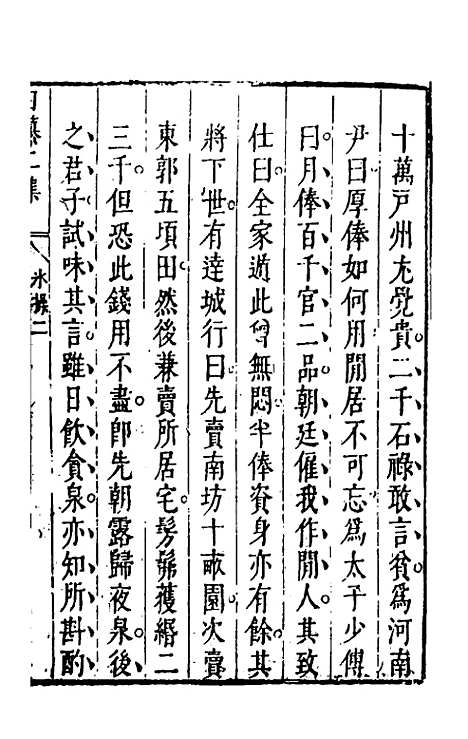 十萬戸州尢覺貴二千石祿敢言貧爲河南
尹曰厚俸如何用閒居不可忘爲太子少傅
曰月俸百千官二品朝廷僱我作閒人其致
仕曰全家遁此曾無悶半俸資身亦有餘其
將下世有達城行曰先賣南坊十畝園次賣
東郭五頃田然後兼賣所居宅髣髴獲緡二
三千但恐此錢用不盡卽先朝露歸夜泉後
之君子試味其言雖日飲貪泉亦知所斟酌
二集